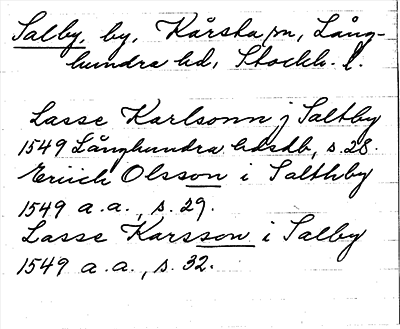 Salby, by, Kårsta sn, Lång-
hundra hd, Stockh. l.
Lasse Karlsonn j Saltby
1549 Långhundra hdsdb, s. 28.
Eriich Olsson i Salthby
1549 a.a., s. 29.
Lasse Karsson i Salby
1549 a.a., s. 32.